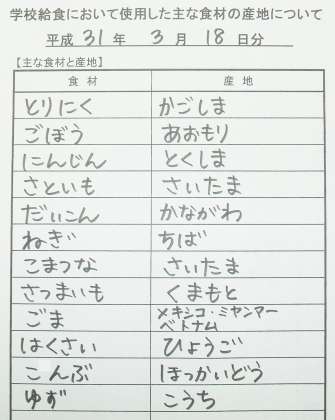 学校給食において使用した主な食材の産地について
平成 31 年 3 月 18 日分
【主な食材と産地】
食材 産地
とりにく かごしま
ごぼう あおもり
にんじん とくしま
さといも さいたま
だいこん かながわ
ねぎ ちば
こまつな さいたま
さつまいも くまもと
ごま メキシコ・ミャンマー
ベトナム
はくさい ひょうご
こんぶ ほっかいどう
ゆず こうち